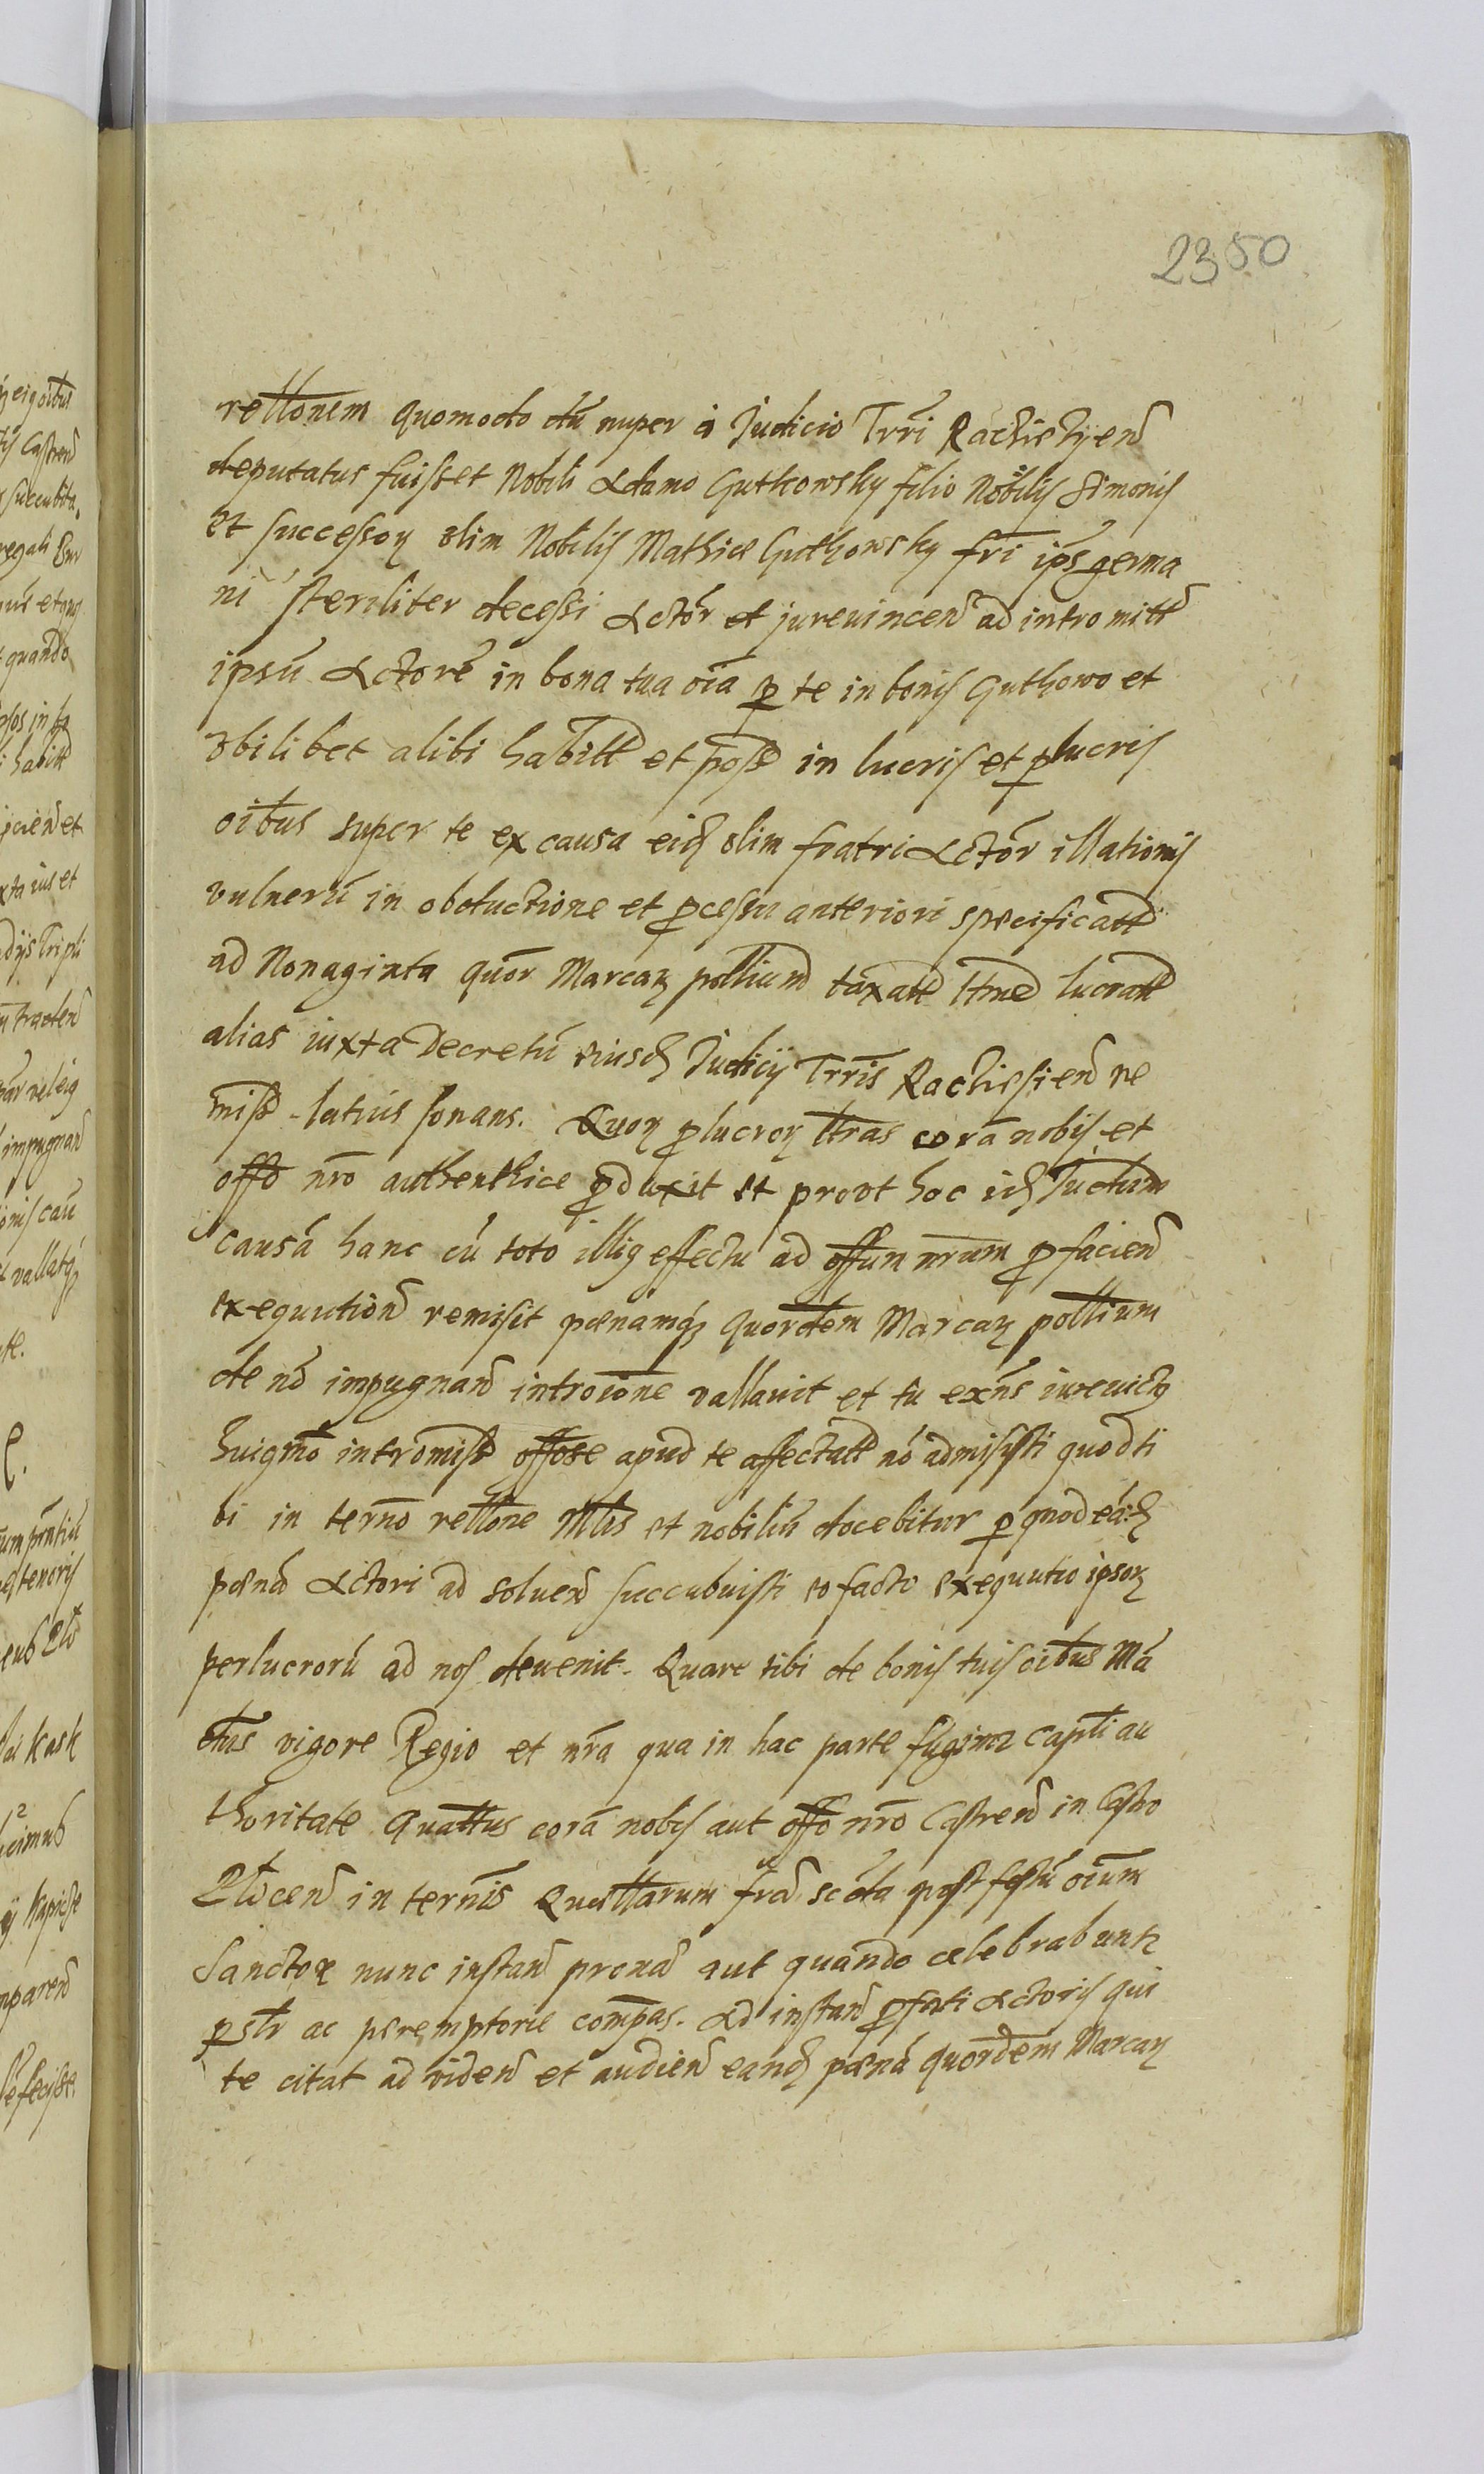 2350
rellonem quomodo dū nuper a Judicio Trri Raczieszyen
deputatus fuisset Nobili Adamo Gutkowsky filio Nobilis Simonis
et successor olim Nobilis Mathiæ Guthowsky fri ips germa
ni steriliter decessi Actor et jurevincen ad intromitt
ipsū Actorē in bona tua oīa p te in bonis Guthowo et
vbilibet alibi habitt et poss in lucris et plucris
oibus super te ex causa eid olim fratri Actor illationis
vulnerū in obductione et pcessu anteriori specificatt
ad Nonaginta quor Marcar pollium taxatt lucratt
alias iuxta Decretū eiusd Judicij Trris re
miss latius sonans. Quor plucror lttras corā nobis et
offo nro authenthice pduxit et prout hoc id Judum
causā hanc cū toto illig effectu ad offum nrum p facien
exequution remisit pænamq quordem Marcar pollium
de nō impugnan introione vallauit et tu exns iurevict
huigmō intromiss offose apud te affectatt nō admisisti quod ti
bi in termo rellone Mlis et nobiliū docebitur p quod eād
pænā Actori ad soluen succubuisti eo facto exequutio ipsor
perlucrorū ad nos deuenit. Quare tibi de bonis tuis oibus Mā
dus vigore Regio et nra qua in hac parte fugimr captli au
thoritate Quattus corā nobis aut offo nro Castren in Castro
Plocen in termis Querllarum fra scda post festū oium
Sanctor nunc instan proxa aut quando celebrabuntr
pslr ac peremptorie compas. Ad instan pfati Actoris qui
te citat ad viden et audien eand pænā quordem Marcar